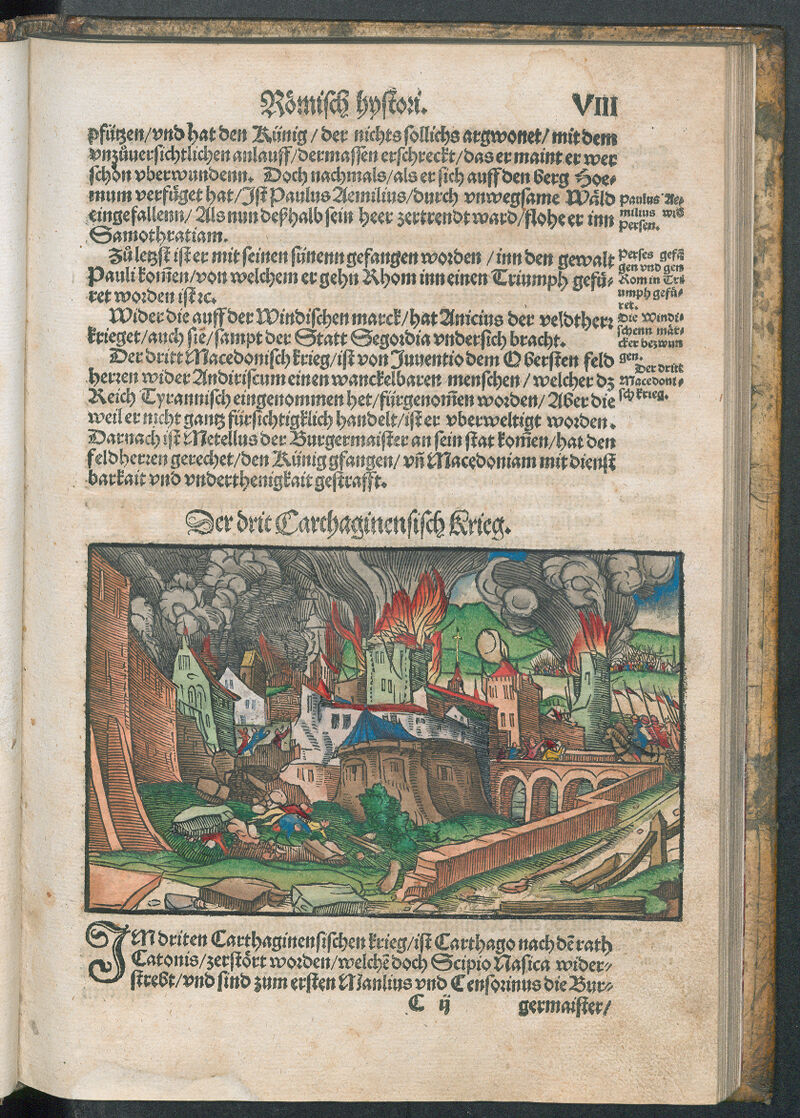 Römisch hystori. VIII
pfützen/vnd hat den Künig/der nichts sollichs argwonet/mit dem
vnzůuersichtlichen anlauff/dermassen erschreckt/das er maint er wer
schon vberwundenn. Doch nachmals/als er sich auff den berg Hoe-
mum verfüget hat/Ist Paulus Aemilius/durch vnwegsame Wäld
eingefallenn/Als nun deßhalb sein heer zertrendt ward/flohe er inn
Samothratiam.
Zů letzst ist er mit seinen sünenn gefangen worden/inn den gewalt
Pauli kom̃en/von welchem er gehn Rhom inn einen Triumph gefü-
ret worden ist ꝛc.
Wider die auff der Windischen marck/hat Anicius der veldtherr
krieget/auch sie/sampt der Statt Segordia vndersich bracht.
Der dritt Macedonisch krieg/ist von Juuentio dem Obersten feld
herren wider Andiriscum einen wanckelbaren menschen/welcher dz
Reich Tyrannisch eingenommen het/fürgenom̃en worden/Aber die
weil er nicht gantz fürsichtigklich handelt/ist er vberweltigt worden.
Darnach ist Metellus der Burgermaister an sein stat kom̃en/hat den
feldherren gerechet/den Künig gfangen/vñ Macedoniam mit dienst
barkait vnd vnderthenigkait gestrafft.
Paulus Ae-
milius wid
Persen.
Perses gefā
gen vnd gen
Rom in Tri
umph gefü-
ret.
Die Windi-
schenn mär-
cker bezwun
gen.
Der dritt
Macedoni-
sch krieg.
Der drit Carthaginensisch Krieg.
IM driten Carthaginensischen krieg/ist Carthago nach dē rath
Catonis/zerstört worden/welchē doch Scipio Nasica wider-
strebt/vnd sind zum ersten Manlius vnd Censorinus die Bur-
C ij germaister/